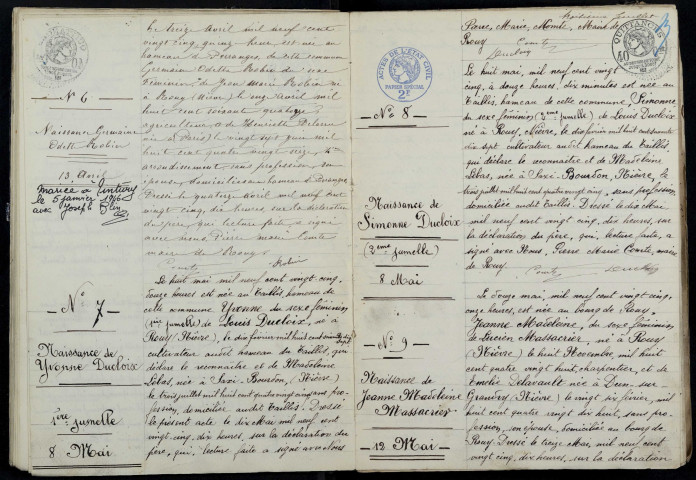 N° 6
Naissance Germaine
Odette Robin
13 Avril
mariée à Tintury
le 5 janvier 1946
avec Joseph
Le treize Avril mil neuf cent
vingt cinq, quinze heures est née au
hameau de de cette commune
Germaine Odette Robin du sexe
féminin, de Jean Marie Robin né
à Rouy (Nièvre) le vingt avril mil
huit cent soixante quatorze
agriculteur, & de Henriette
née à Paris le vingt cinq mil
huit cent quatre vingt seize,
arrondissement, sans profession, son
épouse, domiciliés au hameau de
Dressé le quatorze avril mil neuf cent
vingt cinq, dix heures, sur la déclaration
du père, qui lecture faite a signé
avec nous, Pierre Marie Comte
maire de Rouy.
Comte Robin
N° 7
Naissance de
Yvonne Ducloix
1ère jumelle
8 Mai
Le huit mai mil neuf cent vingt cinq,
douze heures est née au Taillis, hameau de
cette commune Yvonne du sexe féminin
(1ère jumelle) de Louis Ducloix, né à
Rouy (Nièvre), le dix février mil huit cent
cultivateur audit hameau du Taillis, qui
déclare la reconnaitre et de Madeleine
Lebas, née à Saxi-Bourdon, (Nièvre)
le trois juillet mil huit cent quatre vingt cinq sans pro-
fession, domiciliée audit Taillis. Dressé
le présent acte le dix Mai mil neuf cent
vingt cinq, dix heures, sur la déclaration du
père, qui, lecture faite a signé avec Nous
Pierre, Marie, Comte, Maire de
Rouy.
Comte Ducloix
ACTES DE L'ÉTAT CIVIL
PAPIER SPÉCIAL
2F
QUITTANCES
N° 8
Naissance de
Simonne Ducloix
(2ème jumelle)
8 Mai
Le huit mai, mil neuf cent vingt
cinq, à douze heures, dix minutes est née au
Taillis, hameau de cette commune, Simonne
du sexe féminin (2ème jumelle) de Louis Ducloix
né à Rouy, Nièvre, le dix février mil huit cent soixante
dix sept cultivateur audit hameau du Taillis,
qui déclare la reconnaitre et de Madeleine
Lebas, née à Saxi-Bourdon, Nièvre, le
trois juillet mil huit cent quatre vingt cinq, sans profession
domiciliée audit Taillis. Dressé le dix Mai
mil neuf cent vingt cinq, dix heures, sur
la déclaration du père, qui, lecture faite, a
signé avec Nous, Pierre Marie Comte, maire
de Rouy.
Comte Ducloix
N° 9
Naissance de
Jeanne Madeleine
Massacrier
12 Mai
Le douze mai, mil neuf cent vingt cinq,
onze heures, est née au bourg de Rouy,
Jeanne Madeleine, du sexe féminin
de Lucien Massacrier, né à Rouy
(Nièvre) le huit Novembre, mil huit
cent quatre vingt huit, charpentier, et de
Emelie Delavault née à Dun, sur
Grandry (Nièvre) le vingt six février, mil
huit cent quatre vingt dix huit, sans pro-
fession, son épouse, domiciliés au bourg de
Rouy. Dressé le treize Mai, mil neuf cent
vingt cinq, dix heures, sur la déclaration